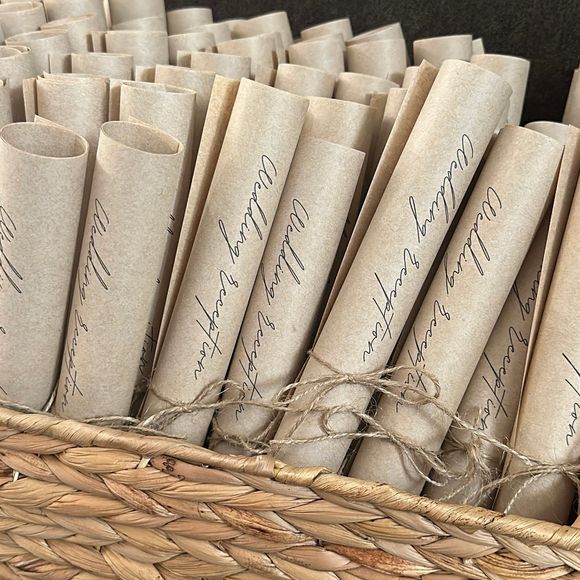 Wedding Reception
Wedding Reception
Wedding Reception
Wedding Reception
Wedding Reception